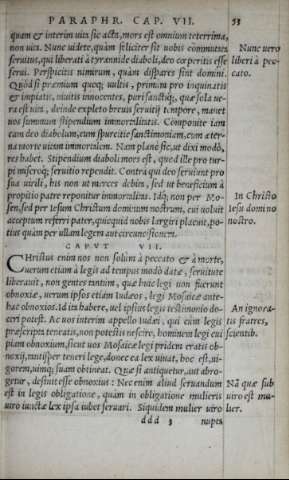 PARAPHR. CAP. VII. 53
quam & interim vita sic acta, mors est omnium teterrima,
non vita. Nunc videte, quàm feliciter sit vobis commutata
servitus, qui liberati à tyrannide diaboli, deo cœpistis esse
servi. Perspicitis nimirum, quàm dispares sint domini.
Quòd si præmium quoque vultis, primum pro inquinatis
& impiis, nuncq; innocentes, puri sanctiq;, quæ sola ve-
ra est vita, deinde expleto brevis servitij tempore, manet
vos summum stipendium immortalitatis. Componite iam
cum deo diabolum, cum spurcitie sanctimoniam, cum æter-
na morte vitam immortalem. Nam planè sic, ut dixi modò,
res habet. Stipendium diaboli mors est, quod ille pro tur-
pi miseroq; servitio rependit. Contrà qui deo serviunt pro
sua virili, his non ut merces debita, sed ut beneficium à
propitio patre reponitur immortalitas. Idq; non per Mo-
sen, sed per Iesum Christum dominum nostrum, cui voluit
acceptum referri pater, quicquid nobis largiri placuit, po-
tius quàm per ullam legem aut circuncisionem.
Nunc vero
liberi à pec-
cato.
In Christo
Iesu domino
nostro.
CAPVT VII.
CHristus enim nos non solùm à peccato & à morte,
verum etiam à legis ad tempus modò datæ, servitute
liberavit, non gentes tantùm, quæ huic legi non fuerunt
obnoxiæ, verum ipsos etiam Iudæos, legi Mosaicæ ante-
hac obnoxios. Id ita habere, vel ipsius legis testimonio do-
ceri potest. Ac vos interim appello Iudæi, qui cùm legis
præscripta teneatis, non potestis nescire, hominem legi cui-
piam obnoxium, sicut vos Mosaicæ legi pridem eratis ob-
noxij, tantisper teneri lege, donec ea lex vivat, hoc est, vi-
gorem, vimq; suam obtineat. Quæ si antiquetur, aut abro-
getur, desinit esse obnoxius: Nec enim aliud servandum
est in legis obligatione, quàm in obligatione mulieris
viro iunctæ lex ipsa iubet servari. Siquidem mulier viro
ddd 3 nupta
An ignora-
tis fratres,
scientib.
Nã quæ sub
viro est mu-
lier.